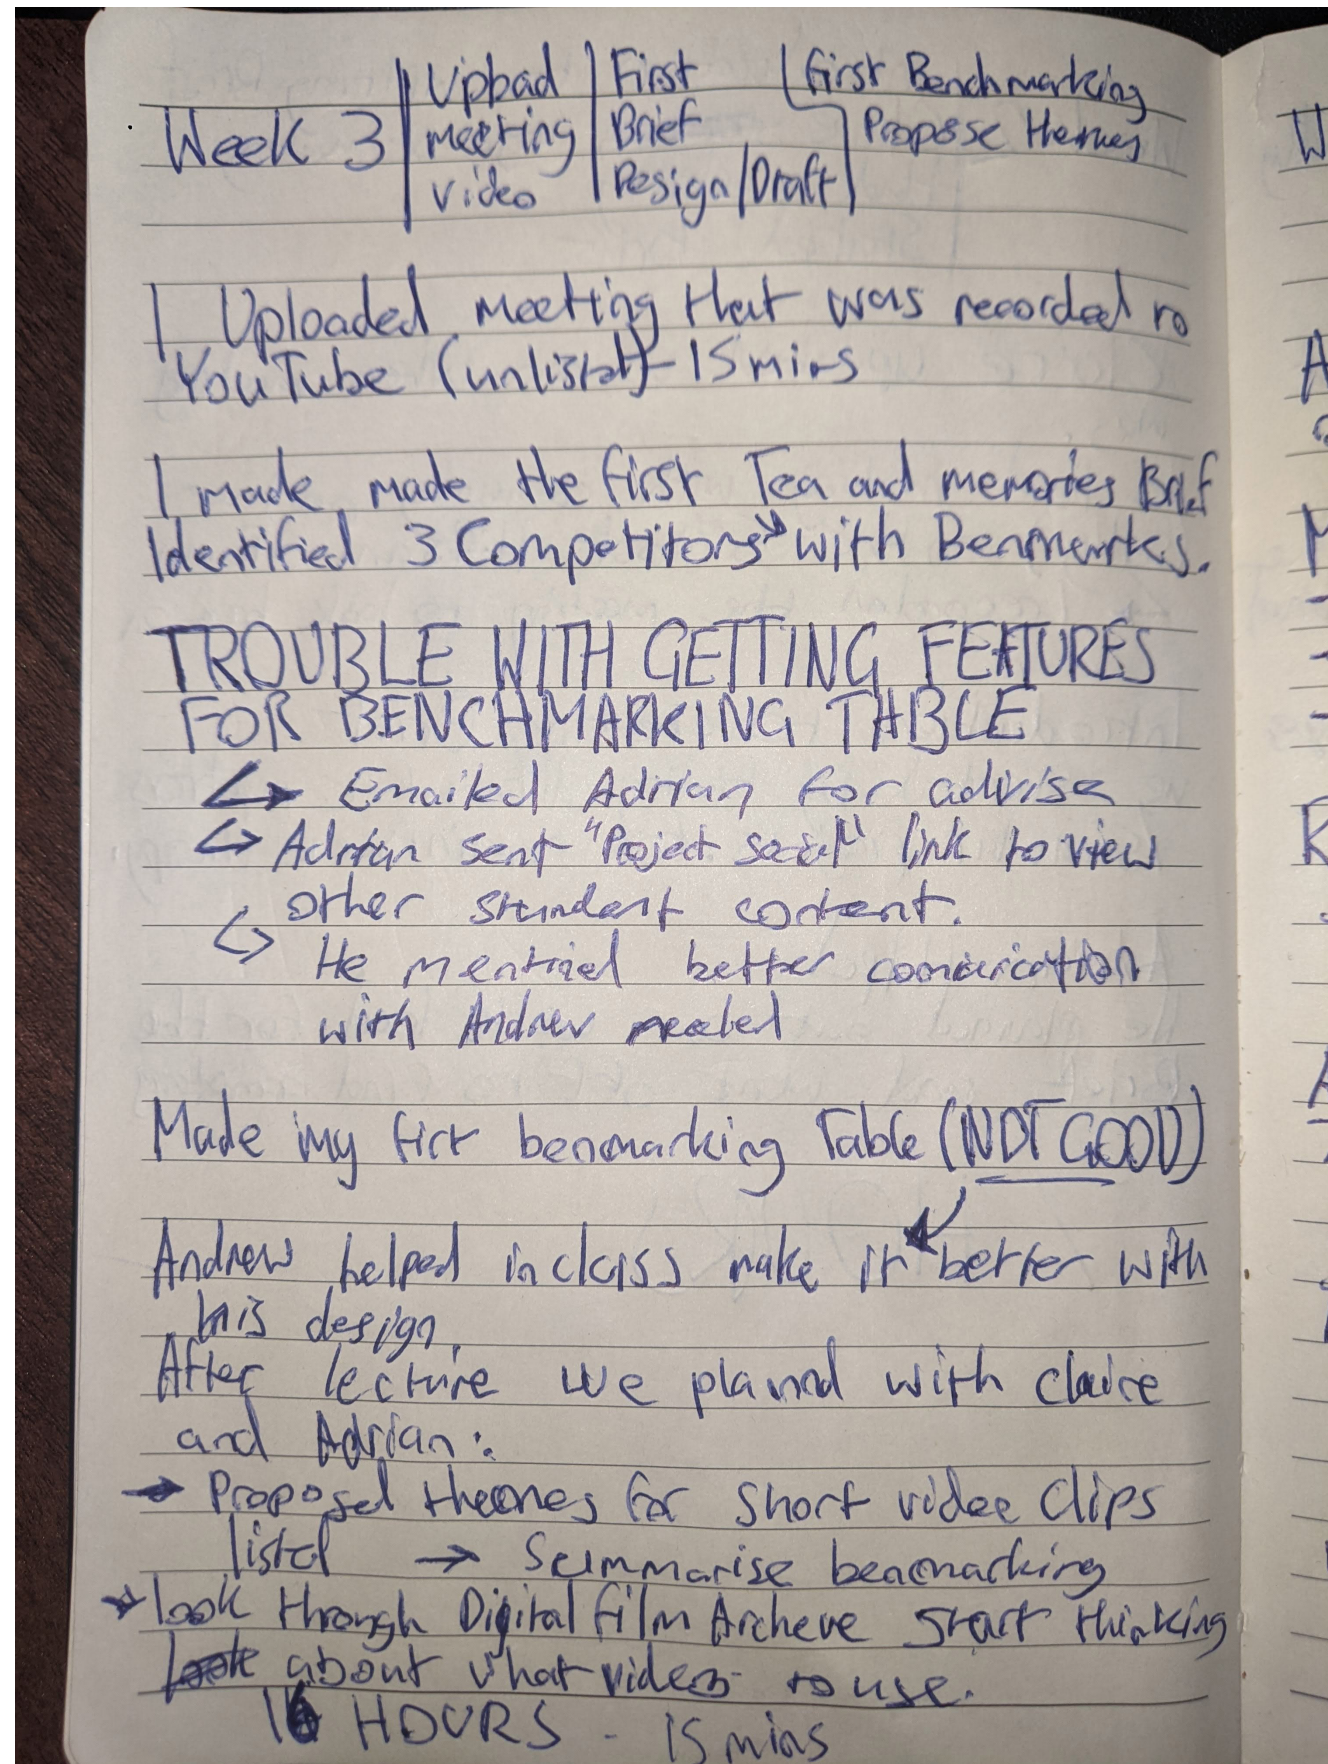 Week 3 | Upload | First | First Benchmarking
meeting | Brief | Propose themes
video | Design/Draft
I Uploaded meeting that was recorded to
YouTube (unlisted) - 15 mins
I made made the first Tea and memories Brief
Identified 3 Competitors with Benmarks.
TROUBLE WITH GETTING FEATURES
FOR BENCHMARKING TABLE
↳ Emailed Adrian for advise
↳ Adrian sent "Project social" link to view
other student content.
↳ He mentioned better comunication
with Andrew needed
Made my first benmarking Table (NOT GOOD)
Andrew helped in class make it better with
his design.
After lecture we planned with claire
and Adrian:
→ Proposed themes for short video clips
listed → Summarise benmarking
→ look through Digital film Archeve start thinking
look about what videos to use.
16 HOURS - 15 mins